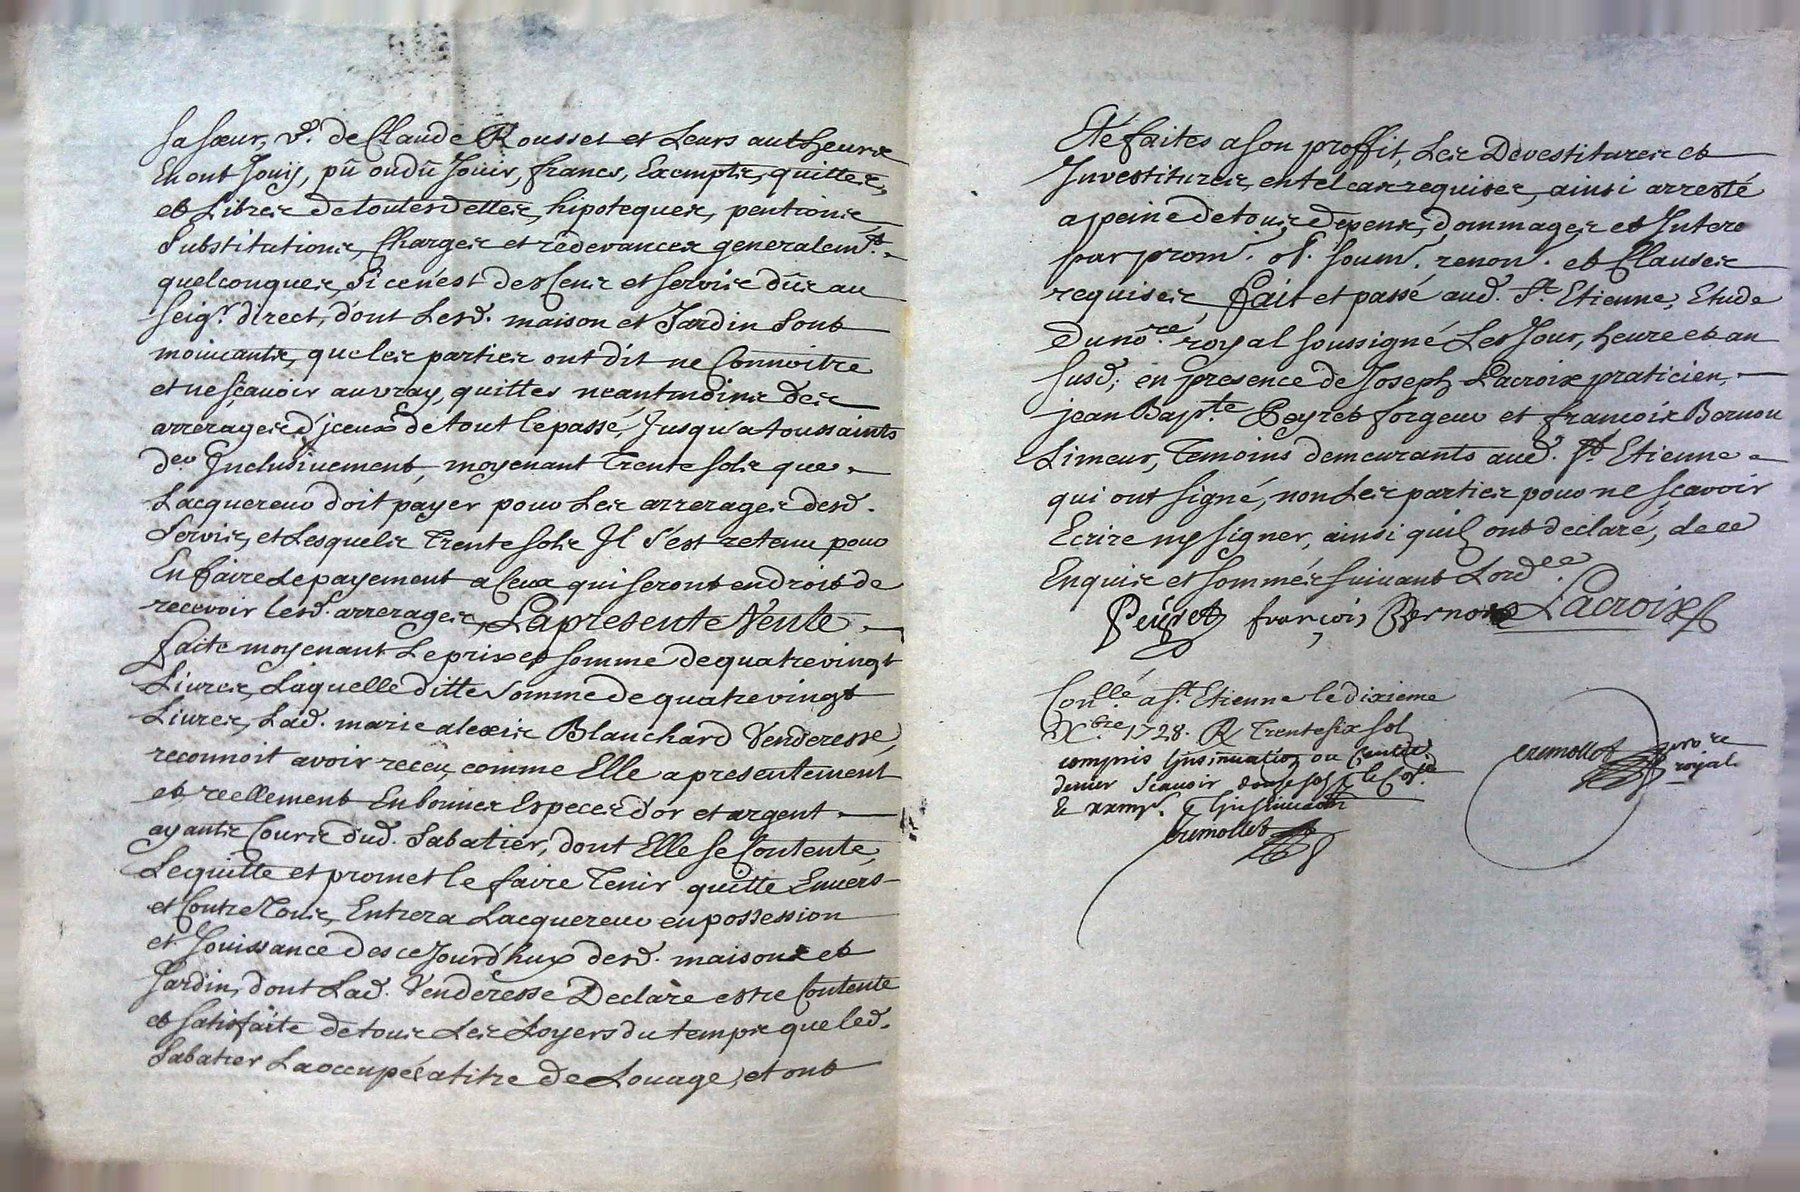 sa sœur, v.e de Claude Rousset et Leurs autheurs
En ont Jouy, pû ou dû Jouir, francs, Exempts, quittes,
et Libres de toutes dettes, hipoteques, pentions
Substitutions, Charges et rédevances generalem.t
quelconques, si ce n'est des Cens et servis dûs au
seig.r direct, d'ont Lesd. maison et Jardin sont
mouvants, que les parties ont dit ne Connoitre
et ne sçavoir au vray, quittes neantmoins des
arrerages d'jceux de tout le passé, Jusqu'a toussaints
der Jnclusivement, moyenant Trente sols que
Lacquereur doit payer pour Les arrerages desd.
Servis, et Lesquels Trente sols Il s'est retenu pour
En faire Le payement a Ceux qui seront en droit de
recevoir lesd. arrerages, La presente Vente
faite moyenant Le prix et somme de quatre vingt
Livres, Laquelle ditte somme de quatre vingt
Livres, Lad. marie alexis Blanchard Venderesse,
reconnoit avoir receu, comme Elle a presentement
et reellement En bonnes Especes d'or et argent
ayants Cours dud. Sabatier, dont Elle se Contente,
Le quitte et promet le faire Tenir quitte Envers
et Contre Tous, Entrera Lacquereur en possession
et Jouissance des ce Jourd'huy desd. maison et
Jardin, dont Lad. Venderesse Declare estre Contente
et satisfaite de tous Les Loyers du temps que led.
Sabatier La occupée a titre de Louage, et ont
Eté faites a son proffit, Les Devestitures et
Investitures, en tel cas requises, ainsi arresté
a peine de tous depens, dommages et Interets
par prom. ob. soum. renon. et Clauses
requises, fait et passé aud. St. Etienne, Etude
du no.re royal soussigné Les Jour, heure et an
susd; en presence de Joseph Lacroix praticien,
jean Bap.te Peyret forgeur et francois Bernou
Limeur, Temoins demeurants aud. St. Etienne
qui ont signé, non Les parties pour ne sçavoir
Ecrire ny signer, ainsi quil ont declaré, de ce
Enquis et sommés suivant Lord.ce
Peyret françois Bernou Lacroix
Conllé a St. Etienne le dixieme
X.bre 1728. R Trente six sol
compris Linsinuation au Centie
denier Scavoir douze sols p le Co.le
& xxiiijs. p Linsinuaon
Crimollet
crimollet no.re
royal